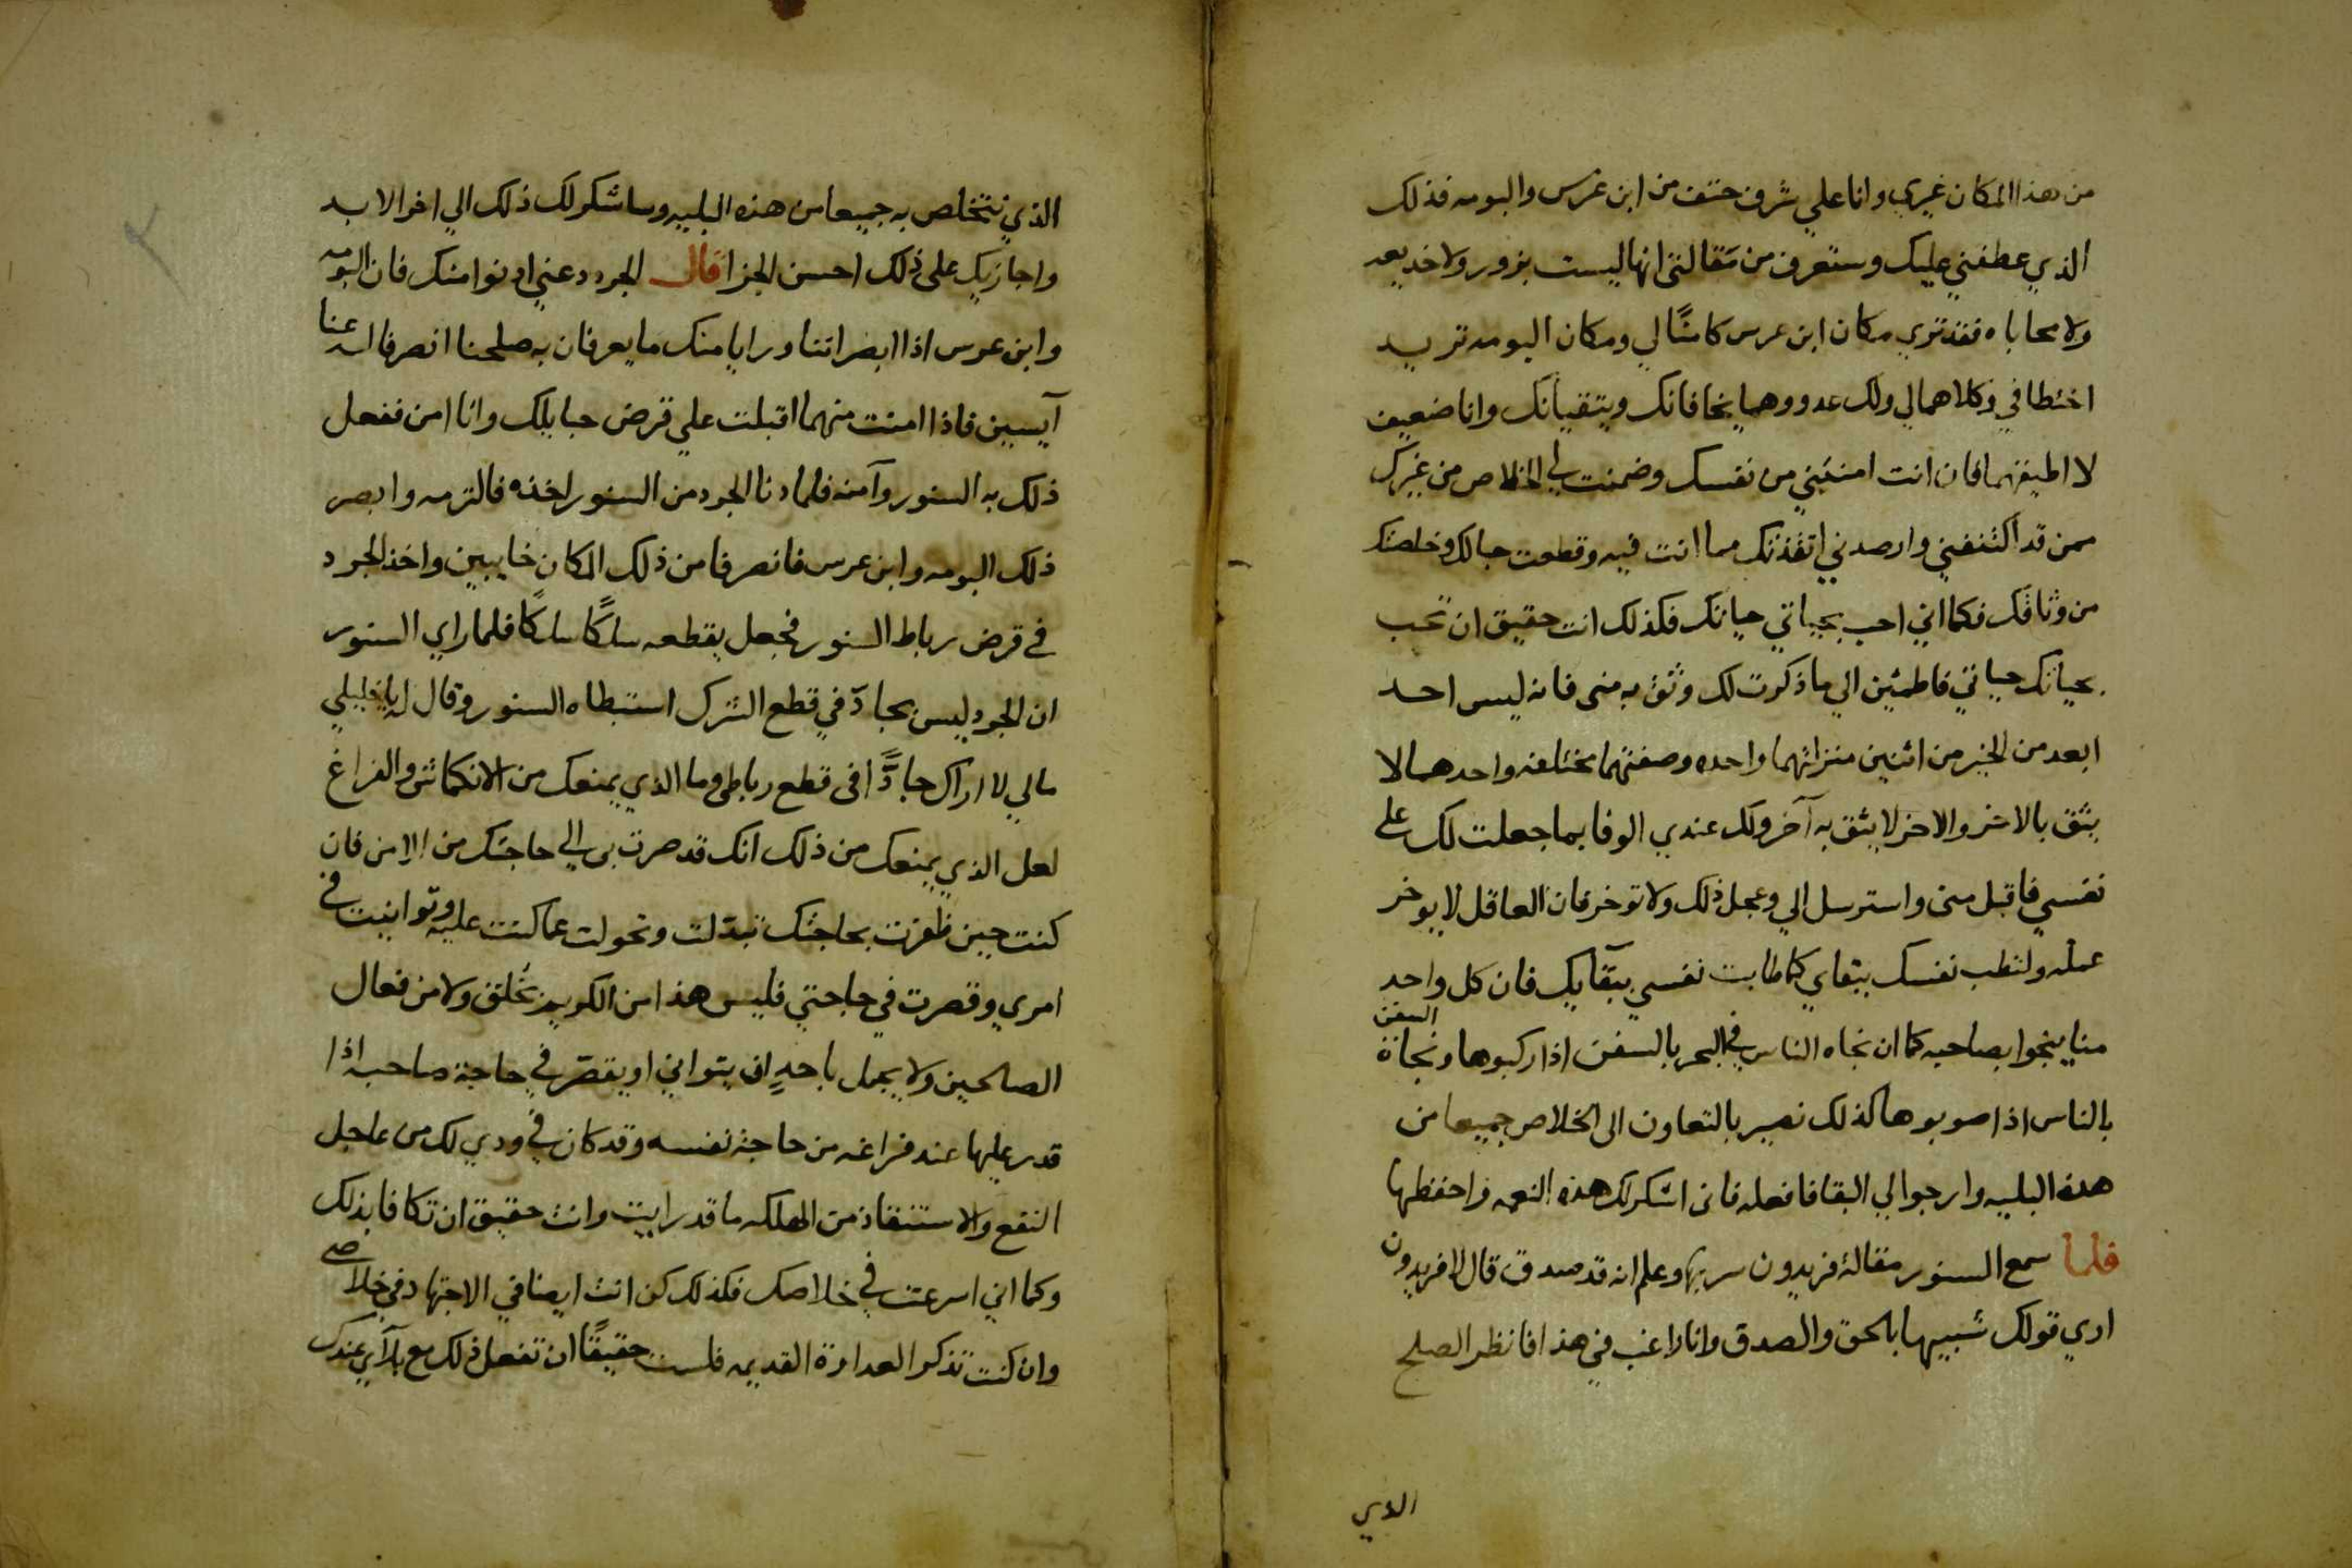 من هذا المكان غيري وانا علي شرف حتف من ابن عرس والبومه فذلك
الذي عطفني عليك وستعرف من مقالتي انها ليست بزور ولا خديعه
ولا محاباه فقد تري مكان ابن عرس كامنًا لي ومكان البومه تريد
اختطافي وكلاهما لي ولك عدو وهما يخافانك ويتقيانك وانا ضعيف
لا اطيقهما فان انت امنتني من نفسك وضمنت لي الخلاص من غيرك
ممن قد اكتنفني وارصدني انقذتك مما انت فيه وقطعت حبالك وخلصتك
من وثاقك فكما اني احب بحياتي حياتك فكذلك انت حقيق ان تحب
بحياتك حياتي فاطمئن الي ما ذكرت لك وثق به مني فانه ليس احد
ابعد من الخير من اثنين منزلتهما واحده وصفتهما مختلفه واحدهما لا
يثق بالاخر والاخر لا يثق به آخر ولك عندي الوفا بما جعلت لك علي
نفسي فاقبل مني واسترسل الي وعجل ذلك ولا توخر فان العاقل لا يوخر
عمله ولتطب نفسك ببقاي كما طابت نفسي ببقآيك فان كل واحد
منا ينجوا بصاحبه كما ان نجاه الناس في البحر بالسفن اذا ركبوها ونجاة السفن
بالناس اذا صوبوها كذلك نصير بالتعاون الى الخلاص جميعا من
هذه البليه وارجوا لي البقا فافعله فاني اشكر لك هذه النعمه واحفظها
فلما سمع السنور مقالة فريدون سر بها وعلم انه قد صدق قال لافريدون
اري قولك شبيها بالحق والصدق وانا راغب في هذا فانظر الصلح
الذي
الذي نتخلص به جميعا من هذه البليه وساشكر لك ذلك الي اخر الابد
واجازيك على ذلك احسن الجزا قال الجرد دعني ادنوا منك فان البومه
وابن عرس اذا ابصراتنا ورايا منك ما يعرفان به صلحنا انصرفا عنا
آيسين فاذا امنت منهما اقبلت علي قرض حبايلك وانا امن ففعل
ذلك به السنور وآمنه فلما دنا الجرد من السنور اخذه فالتزمه وابصر
ذلك البومه وابن عرس فانصرفا من ذلك المكان خايبين واخذ الجرد
في قرض رباط السنور فجعل يقطعه سلكًا سلكًا فلما راي السنور
ان الجرد ليس بجادّ في قطع الشرك استبطاه السنور وقال له يا خليلي
مالي لا اراك جادًّا في قطع رباطي وما الذي يمنعك من الانكماش والفراغ
لعل الذي يمنعك من ذلك انك قد صرت بي الي حاجتك من الامن فان
كنت حين ظفرت بحاجتك تبدّلت وتحولت عما كنت عليه وتوانيت في
امري وقصرت في حاجتي فليس هذا من الكريم بخُلق ولا من فعال
الصالحين ولا يجمل باحدٍ ان يتواني او يقصّر في حاجة صاحبه اذا
قدر عليها عند فراغه من حاجة نفسه وقد كان في ودي لك من عاجل
النفع والاستنقاذ من الهلكه ما قد رايت وانت حقيق ان تكافا بذلك
وكما اني اسرعت في خلاصك فكذلك كن انت ايضا في الاجتهاد في خلاصي
وان كنت تذكر العداوة القديمه فلست حقيقًا ان تفعل ذلك مع بلآي عندك